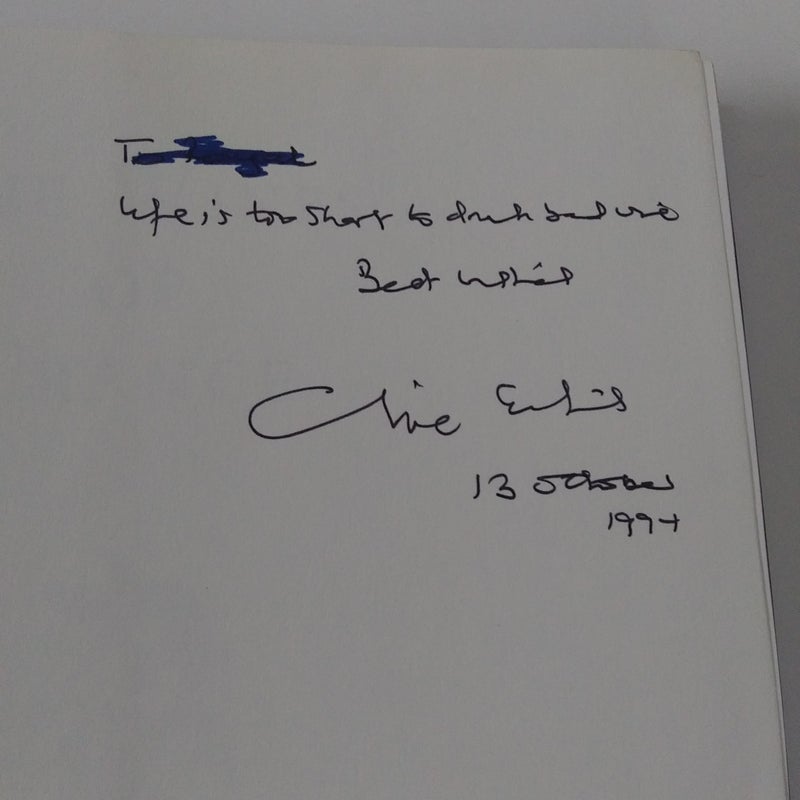 Life is too short to drink bad wine
Best wishes
Clive
13 October
1994